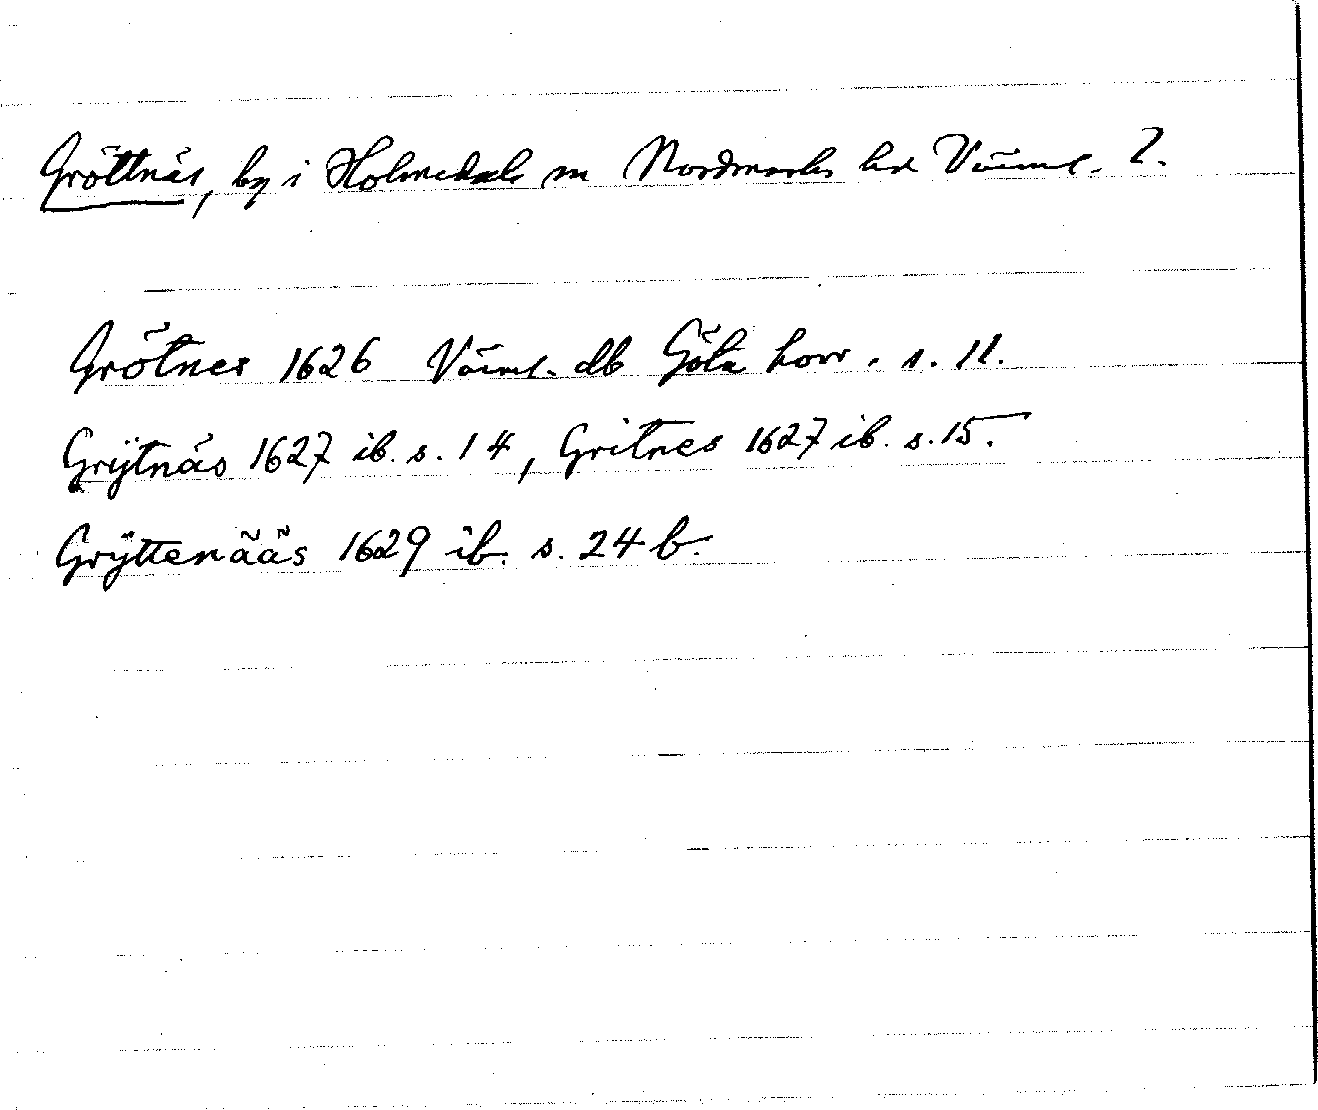 Gröttnäs, by i Holmedals sn Nordmarks hd Värml. l.
Grötnes 1626 Värml. db Göta hovr. s. 11.
Grÿtnäs 1627 ib. s. 14, Gritnes 1627 ib. s. 15.
Grÿttenääs 1629 ib. s. 24 b.